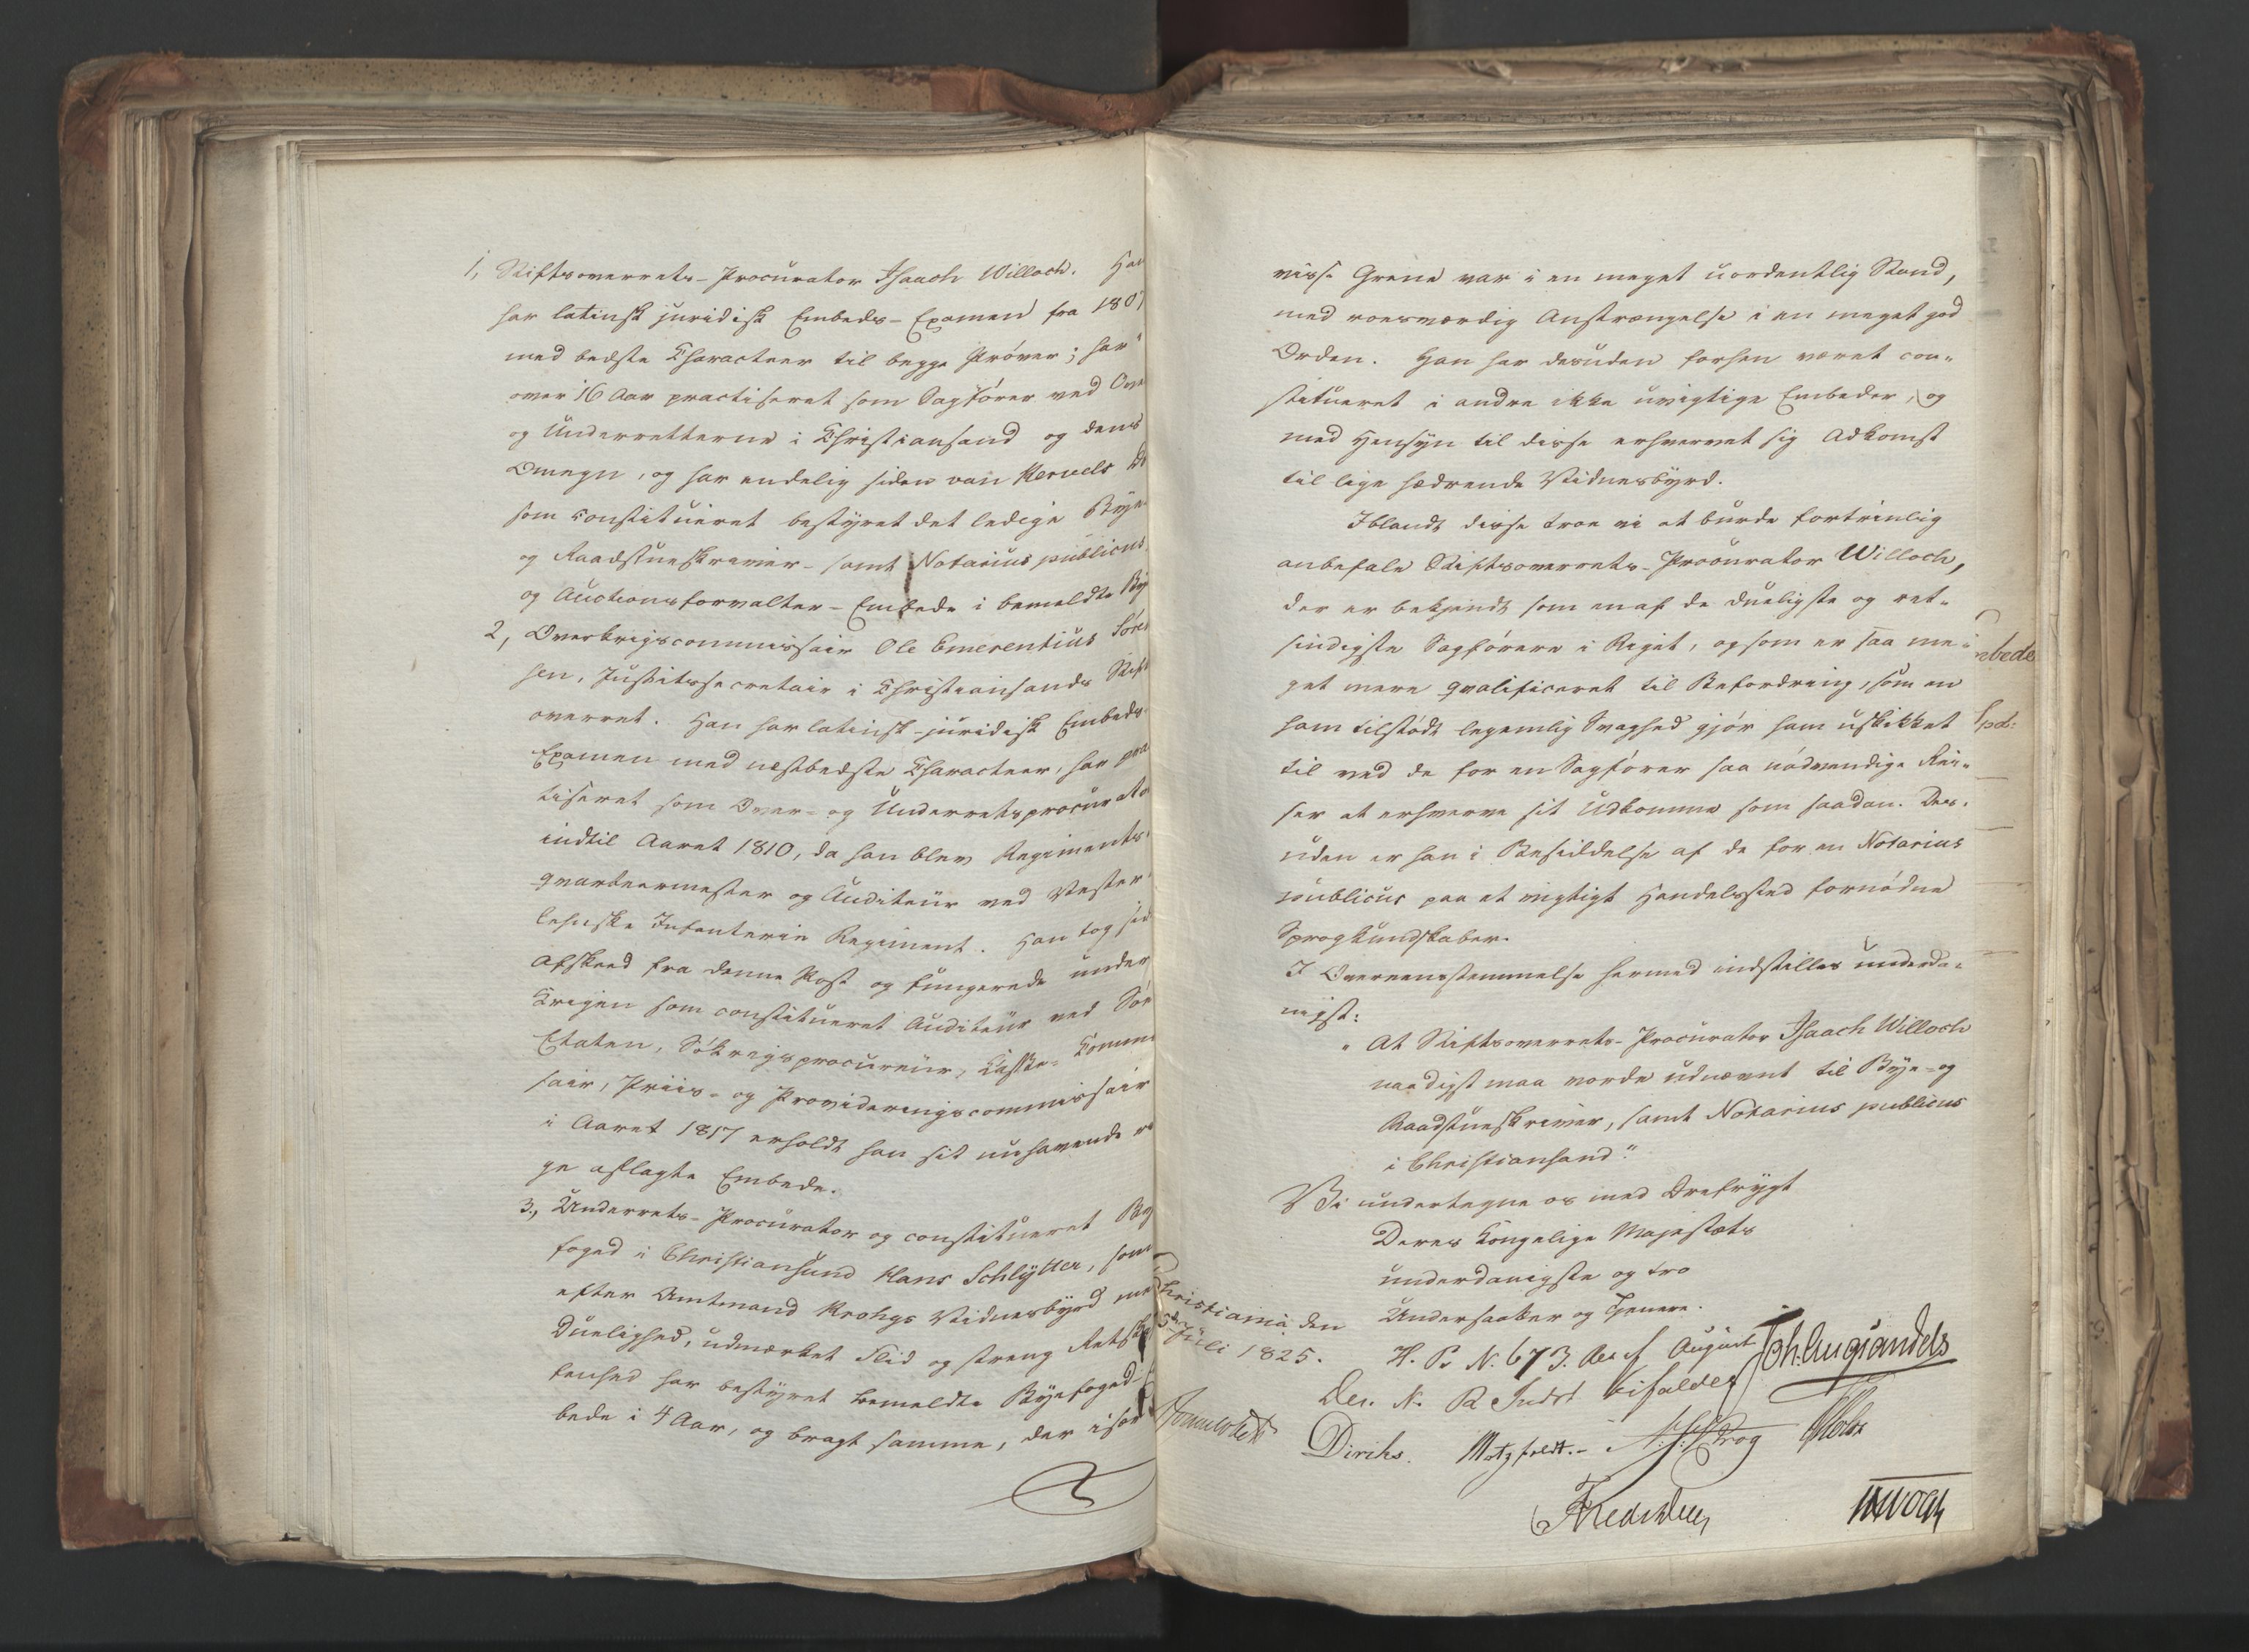 1, Stiftsoverrets-Procurator Isaach Willoch. Han
har latinsk juridisk Embeds-Examen fra 1807
med bedste Characteer til begge Prøver; har
over 16 Aar practiseret som Sagfører ved Over
og Underretterne i Christiansand og dens
Omegn, og har endelig siden van Kervels
som constitueret bestyret det ledige Bye
og Raadstueskriver- samt Notarius publicus
og Auctionsforvalter-Embede i bemeldte By
2, Overkrigscommissair Ole Emerentius Søren
sen, Justitssecretair i Christiansands Stift
overret. Han har latinsk-juridisk Embeds-
Examen med næstbedste Characteer, har prac
tiseret som Over- og Underretsprocurator
indtil Aaret 1810, da han blev Regiments-
qvarteermester og Auditeur ved Vester
lehnske Infanterie Regiment. Han tog sin
Afskeed fra denne Post og fungerede under
Krigen som constitueret Auditeur ved Søe
Etaten, Søkrigsprocureur, Commis
sair, Priis- og Provideringscommissair
i Aaret 1817 erholdt han sit nuhavende
ge aflagte Embede.
3, Underrets-Procurator og constitueret By
foged i Christiansund Hans Schlytter, som
efter Amtmand Krohgs Vidnesbyrd med
Duelighed, udmærket Flid og streng Retsk
fenhed har bestyret bemeldte Byefoged-
bede i 4 Aar, og bragt samme, der i
visse Grene var i en meget uordentlig Stand,
med roesværdig Anstrængelse i en meget god
Orden. Han har desuden forhen været con-
stitueret i andre ikke uvigtige Embeder, og
med Hensyn til disse erhvervet sig Adkomst
til lige hædrende Vidnesbyrd.
Iblandt disse troe vi at burde fortrinlig
anbefale Stiftsoverrets-Procurator Willoch,
der er bekjendt som en af de dueligste og ret-
sindigste Sagførere i Riget, og som er saa me-
get mere qvalificeret til Befordring, som en
ham tilstødt legemlig Svaghed gjør ham uskikket
til ved de for en Sagfører saa nødvendige Rei-
ser at erhverve sit Udkomme som saadan. Des-
uden er han i Besiddelse af de for en Notarius
publicus paa et vigtigt Handelssted fornødne
Sprogkundskaber.
I Overeensstemmelse hermed indstilles underda-
nigst:
" At Stiftsoverrets-Procurator Isaach Willoch
naadigst maa vorde udnævnt til Bye- og
Raadstueskriver, samt Notarius publicus
i Christiansand."
Vi undertegne os med Ærefrygt
Deres Kongelige Majestæts
underdanigste og tro
Undersaatter og Tjenere.
Christiania den
Juli 1825.
H. P. N. 673. August
Joh. Aug Sandels
Sommerfeldt
Diriks. Motzfeldt. Krog Holst
Vogt